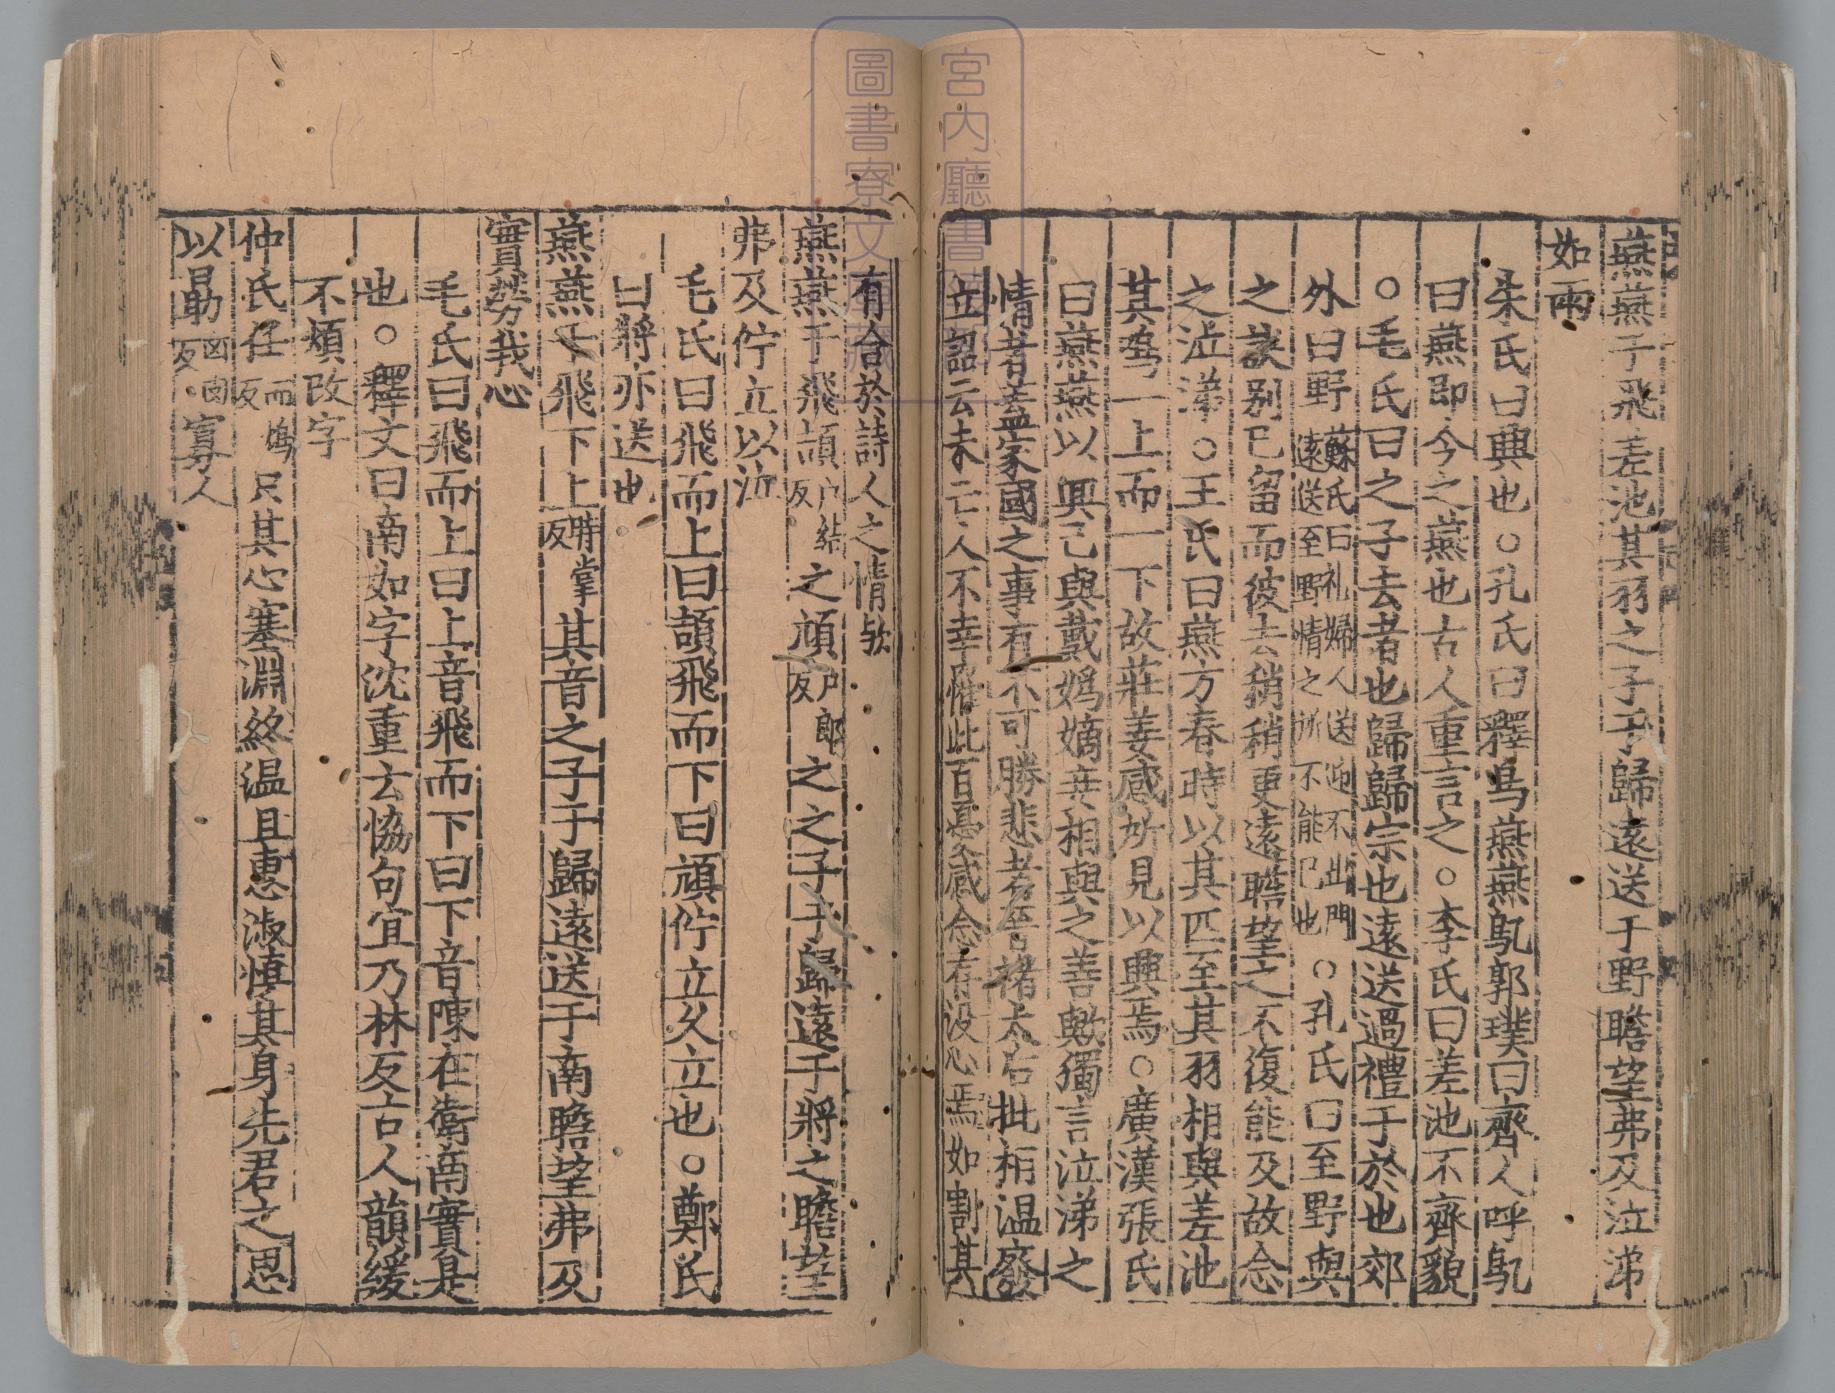 燕燕于飛差池其羽之子于歸遠送于野瞻望弗及泣涕
如雨
朱氏曰興也○孔氏曰釋鳥燕燕鳦郭璞曰齊人呼鳦
曰燕即今之燕也古人重言之○李氏曰差池不齊貌
○毛氏曰之子去者也歸歸宗也遠送過禮于於也郊
外曰野蘇氏曰礼婦人送迎不出門遠送至野情之所不能已也○孔氏曰至野與
之訣别已留而彼去稍稍更遠瞻望之不復能及故念
之泣涕○王氏曰燕方春時以其匹至其羽相與差池
其鳴一上而一下故莊姜感所見以興焉○廣漢張氏
曰燕燕以興己與戴媯嫡妾相與之善歟獨言泣涕之
情者蓋家國之事有不可勝悲者晉褚太后批桓温廢
立詔云未亡人不幸罹此百憂感念存没心焉如割其
有合於詩人之情歟
燕燕于飛頡户結反之頏户郎反之之子于歸遠于將之瞻望
弗及佇立以泣
毛氏曰飛而上曰頡飛而下曰頏佇立久立也○鄭氏
曰將亦送也
燕燕于飛下上時掌反其音之子于歸遠送于南瞻望弗及
實勞我心
毛氏曰飛而上曰上音飛而下曰下音陳在衛南實是
也○釋文曰南如字沈重云恊句宜乃林反古人韻緩
不煩改字
仲氏任而鴆反只其心塞淵終温且惠淑慎其身先君之思
以勗凶囪反寡人
宮内廳書
圖書寮文